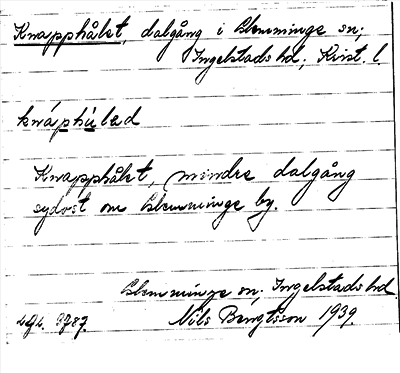 Knapphålet, dalgång i Glemminge sn;
Ingelstads hd; Krist. l.
knáphu̇led
Knapphålet, mindre dalgång
sydost om Glemminge by.
Glemminge sn; Ingelstads hd
Nils Bengtsson 1939.